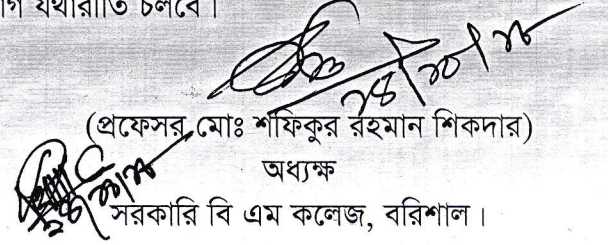 যথারীতি চলবে।
২৪/১০/১৮
(প্রফেসর মোঃ শফিকুর রহমান শিকদার)
অধ্যক্ষ
সরকারি বি এম কলেজ, বরিশাল।